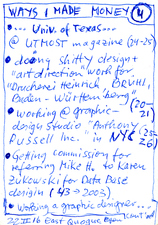 WAYS I MADE MONEY 4
• ... Univ. of Texas...
@ UTMOST magazine (24-25)
• doing shitty design +
"art direction work for
"Druckerei Heinrich
Baden-Württemberg"
(20-21)
• working @ graphic
design studio "Anthony
Russell Inc." in NYC (25-26)
• Getting commission for
referring Mike H. to Karen
Zukowski for Data Base
design (43 → 2003)
• Working a graphic designer...
22 II 16 East Quogue Open (cont'd)